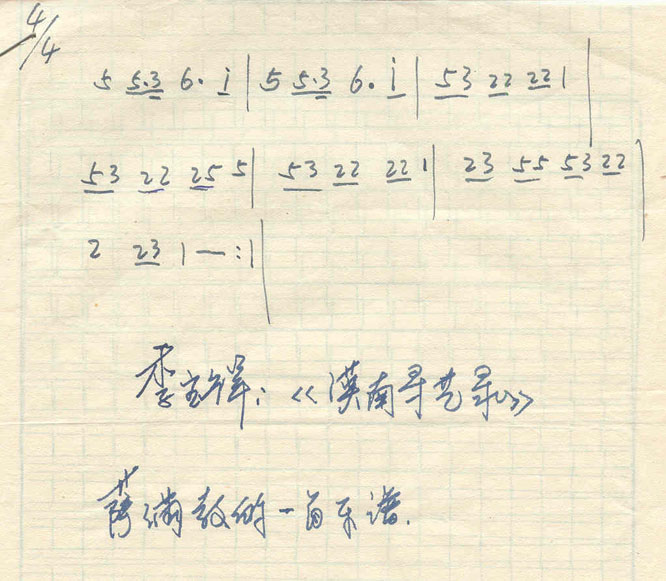 4/4
5 5·3 6· i | 5 5·3 6· i | 53 22 22 1 |
53 22 25 5 | 53 22 22 1 | 23 55 53 22 |
2 23 1 — :|
李宝祥:《漠南寻艺录》
萨满教的一首乐谱.